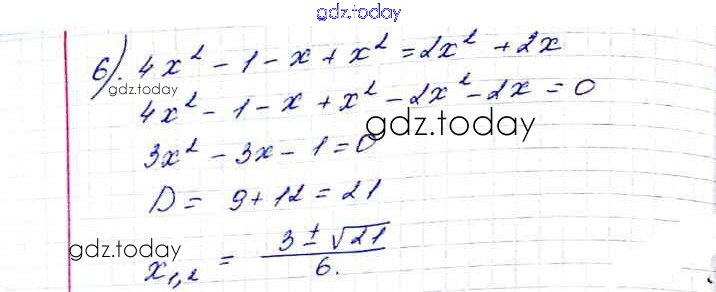 gdz.today
6). 4x² - 1 - x + x² = 2x² + 2x
gdz.today
4x² - 1 - x + x² - 2x² - 2x = 0
gdz.today
3x² - 3x - 1 = 0
D = 9 + 12 = 21
gdz.today
x₁,₂ = (3 ± √21) / 6.